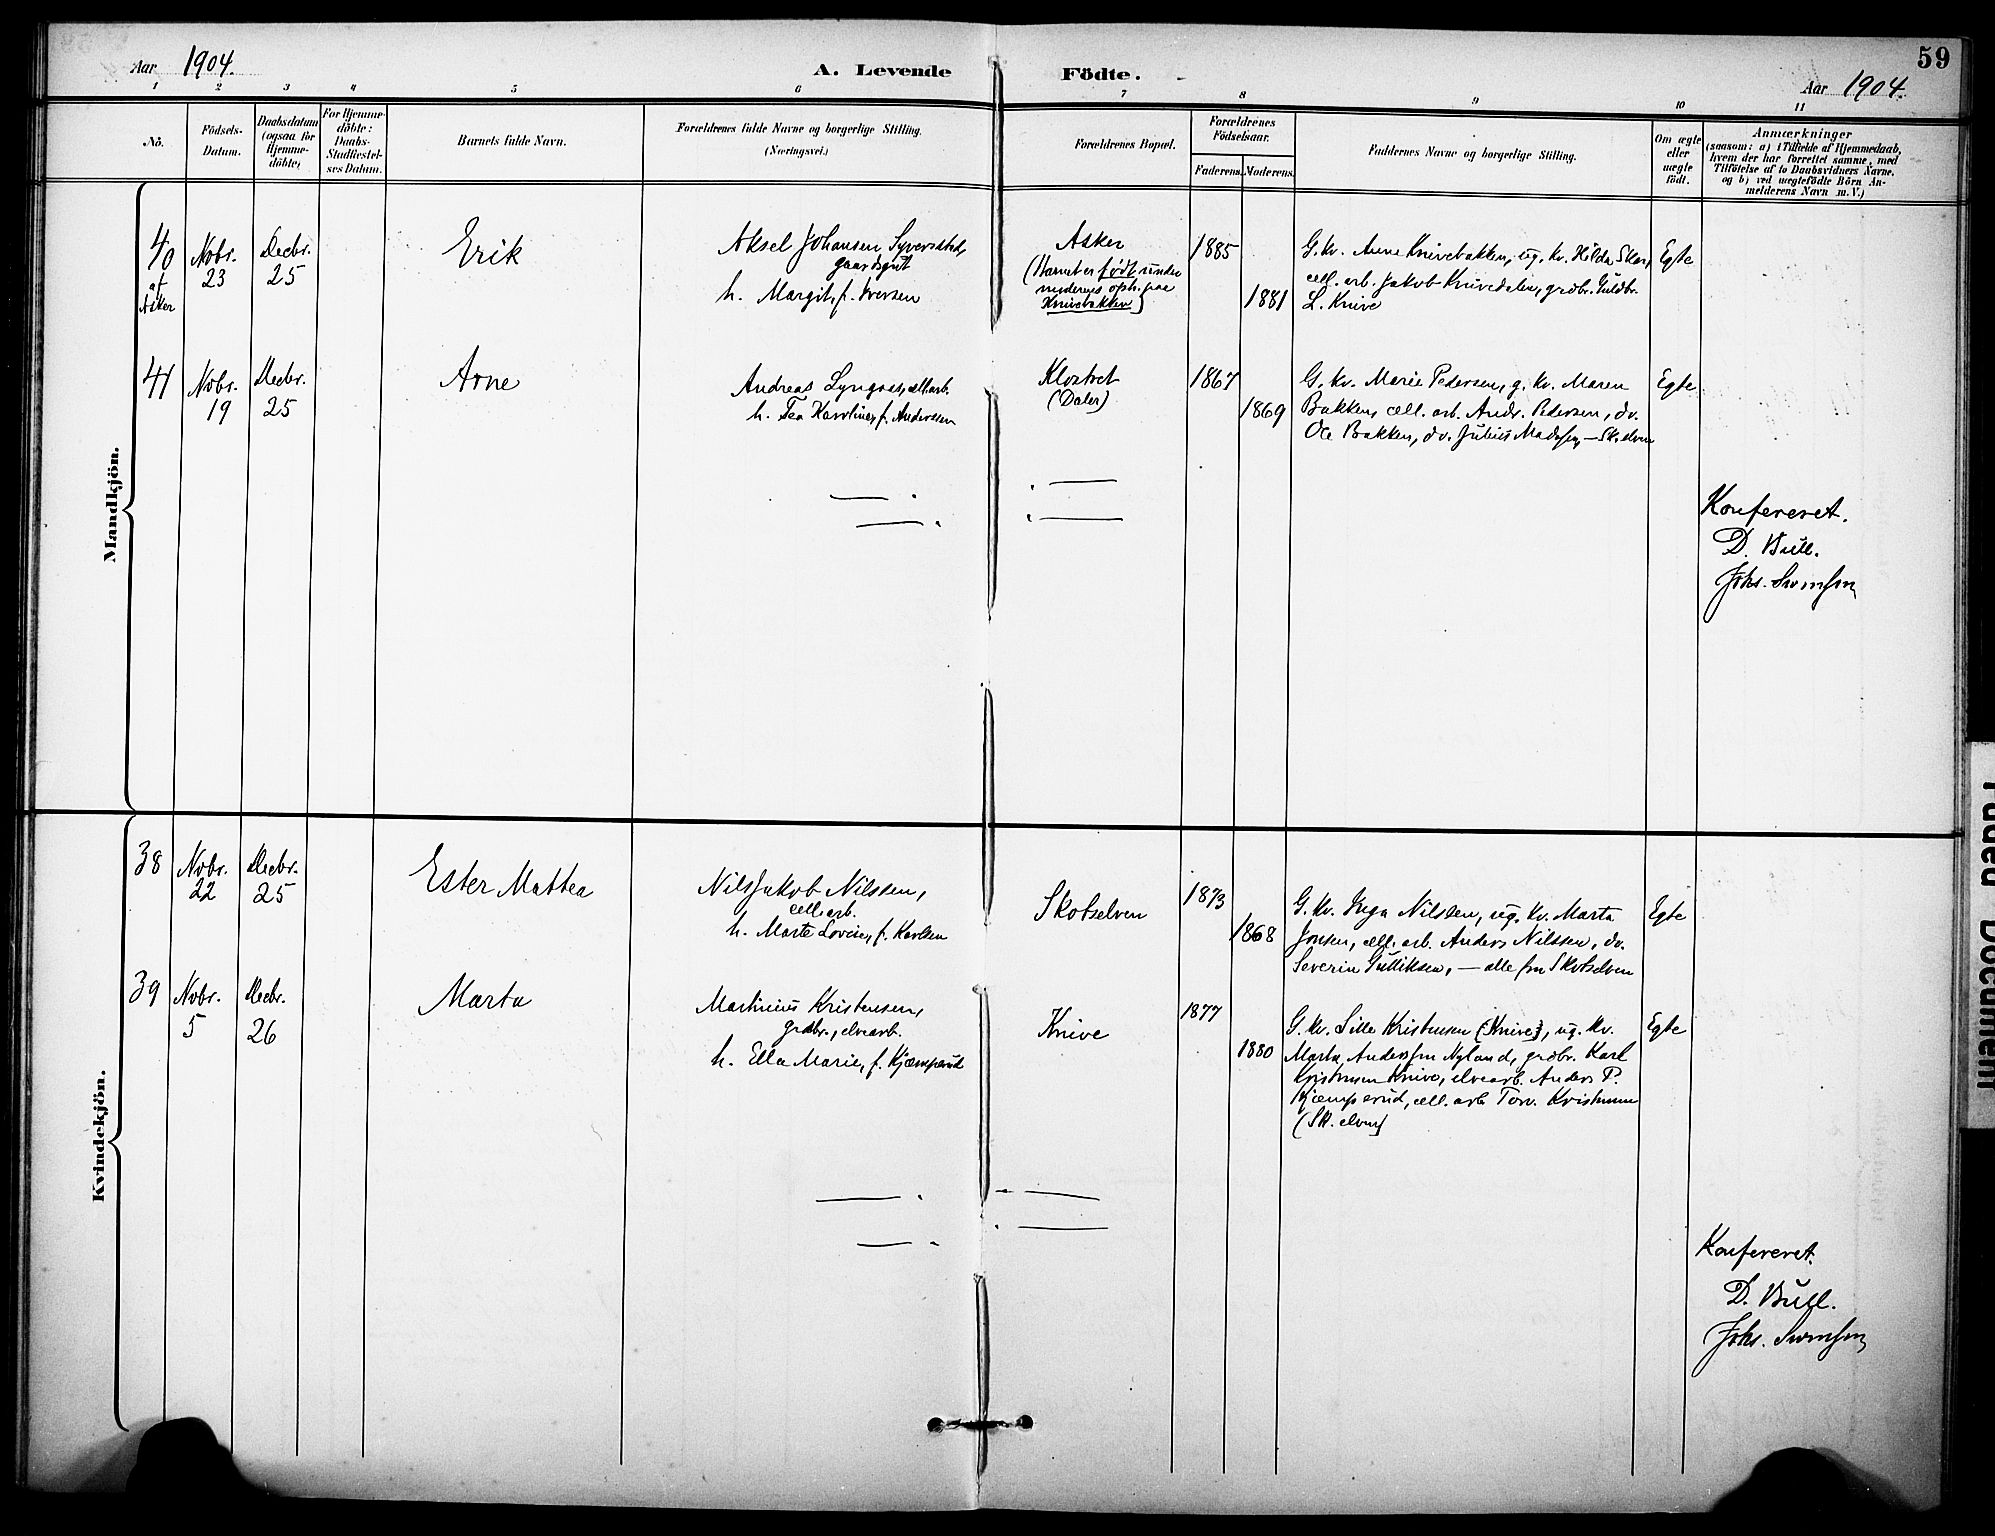 59
Aar 1904.
A. Levende Födte.
Aar 1904.
1 2 3 4 5 6 7 8 9 10 11
No.
Födsels-
Datum.
Daabsdatum
(ogsaa for
Hjemme-
döbte.)
For Hjemme-
döbte:
Daabs-
Stadfæstel-
ses Datum.
Barnets fulde Navn.
Forældrenes fulde Navne og borgerlige Stilling.
(Næringsvei.)
Forældrenes Bopæl.
Forældrenes
Födselsaar.
Faderens. Moderens.
Faddernes Navne og borgerlige Stilling.
Om ægte
eller
uægte
födt.
Anmærkninger
(saasom: a) i Tilfælde af Hjemmedaab,
hvem der har forrettet samme, med
Tilföielse af to Daabsvidners Navne,
og b) ved uægtefödte Börn An-
melderens Navn m. V.)
Mandkjön.
40
af
Asker
Nobr.
23
Decbr.
25
Erik
Aksel Johansen Syverstad,
gaardsgut
h. Margit, f. Iversen
Asker
(Barnet er født under
moderens oph. paa
Knivebakken)
1885
1881
G. kv. Anne Knivebakken, ug. kv. Hilda Skar,
cell. arb. Jakob Knivedalen, grdbr. Guldbr.
L. Knive
Egte
41
Nobr.
19
Decbr.
25
Arne
Andreas Lyngaas, cell. arb.
h. Tea Karoline, f. Anderssen
Klostret
(Daler)
1867
1869
G. kv. Marie Pedersen, g. kv. Maren
Bakken, cell. arb. Andr. Pedersen, do.
Ole Bakken, do. Julius Madssen, — Sk.elven
Egte
Konfereret.
D. Bull.
Johs. Svensson
Kvindekjön.
38
Nobr.
22
Decbr.
25
Ester Mattea
Nils Jakob Nilssen,
cell. arb.
h. Marte Lovise, f. Karlsen
Skotselven
1873
1868
G. kv. Inga Nilssen, ug. kv. Marta
Jonsen, cell. arb. Anders Nilssen, do.
Severin Gulliksen, — alle fra Skotselven
Egte
39
Nobr.
5
Decbr.
26
Marta
Martinius Kristensen,
grdbr., elvearb.
h. Ella Marie, f. Kjæmperud
Knive
1877
1880
G. kv. Sille Kristensen (Knive), ug. kv.
Marta Anderssen Nyland, grdbr. Karl
Kristensen Knive, elvearb. Anders P.
Kjæmperud, cell. arb. Torv. Kristensen
(Sk. elven)
Egte
Konfereret.
D. Bull.
Johs. Svensson